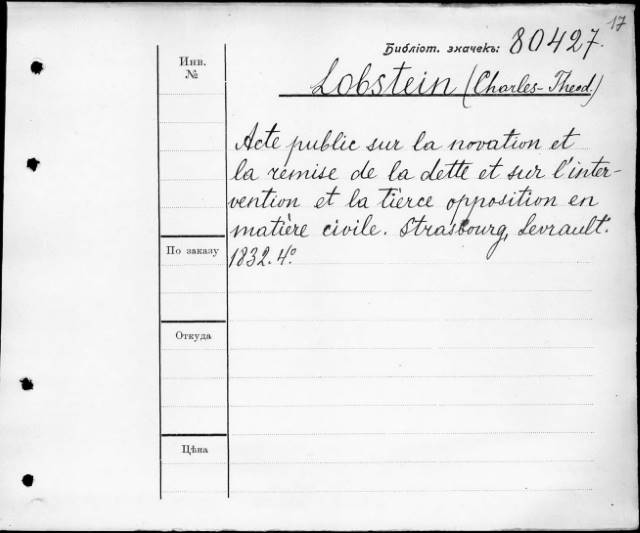 17
Библіот. значекъ: 80427.
Инв.
№
Lobstein (Charles-Theod.)
Acte public sur la novation et
la remise de la dette et sur l'inter-
vention et la tièrce opposition en
matière civile. Strasbourg, Levrault.
По заказу
1832. 4º
Откуда
Цѣна